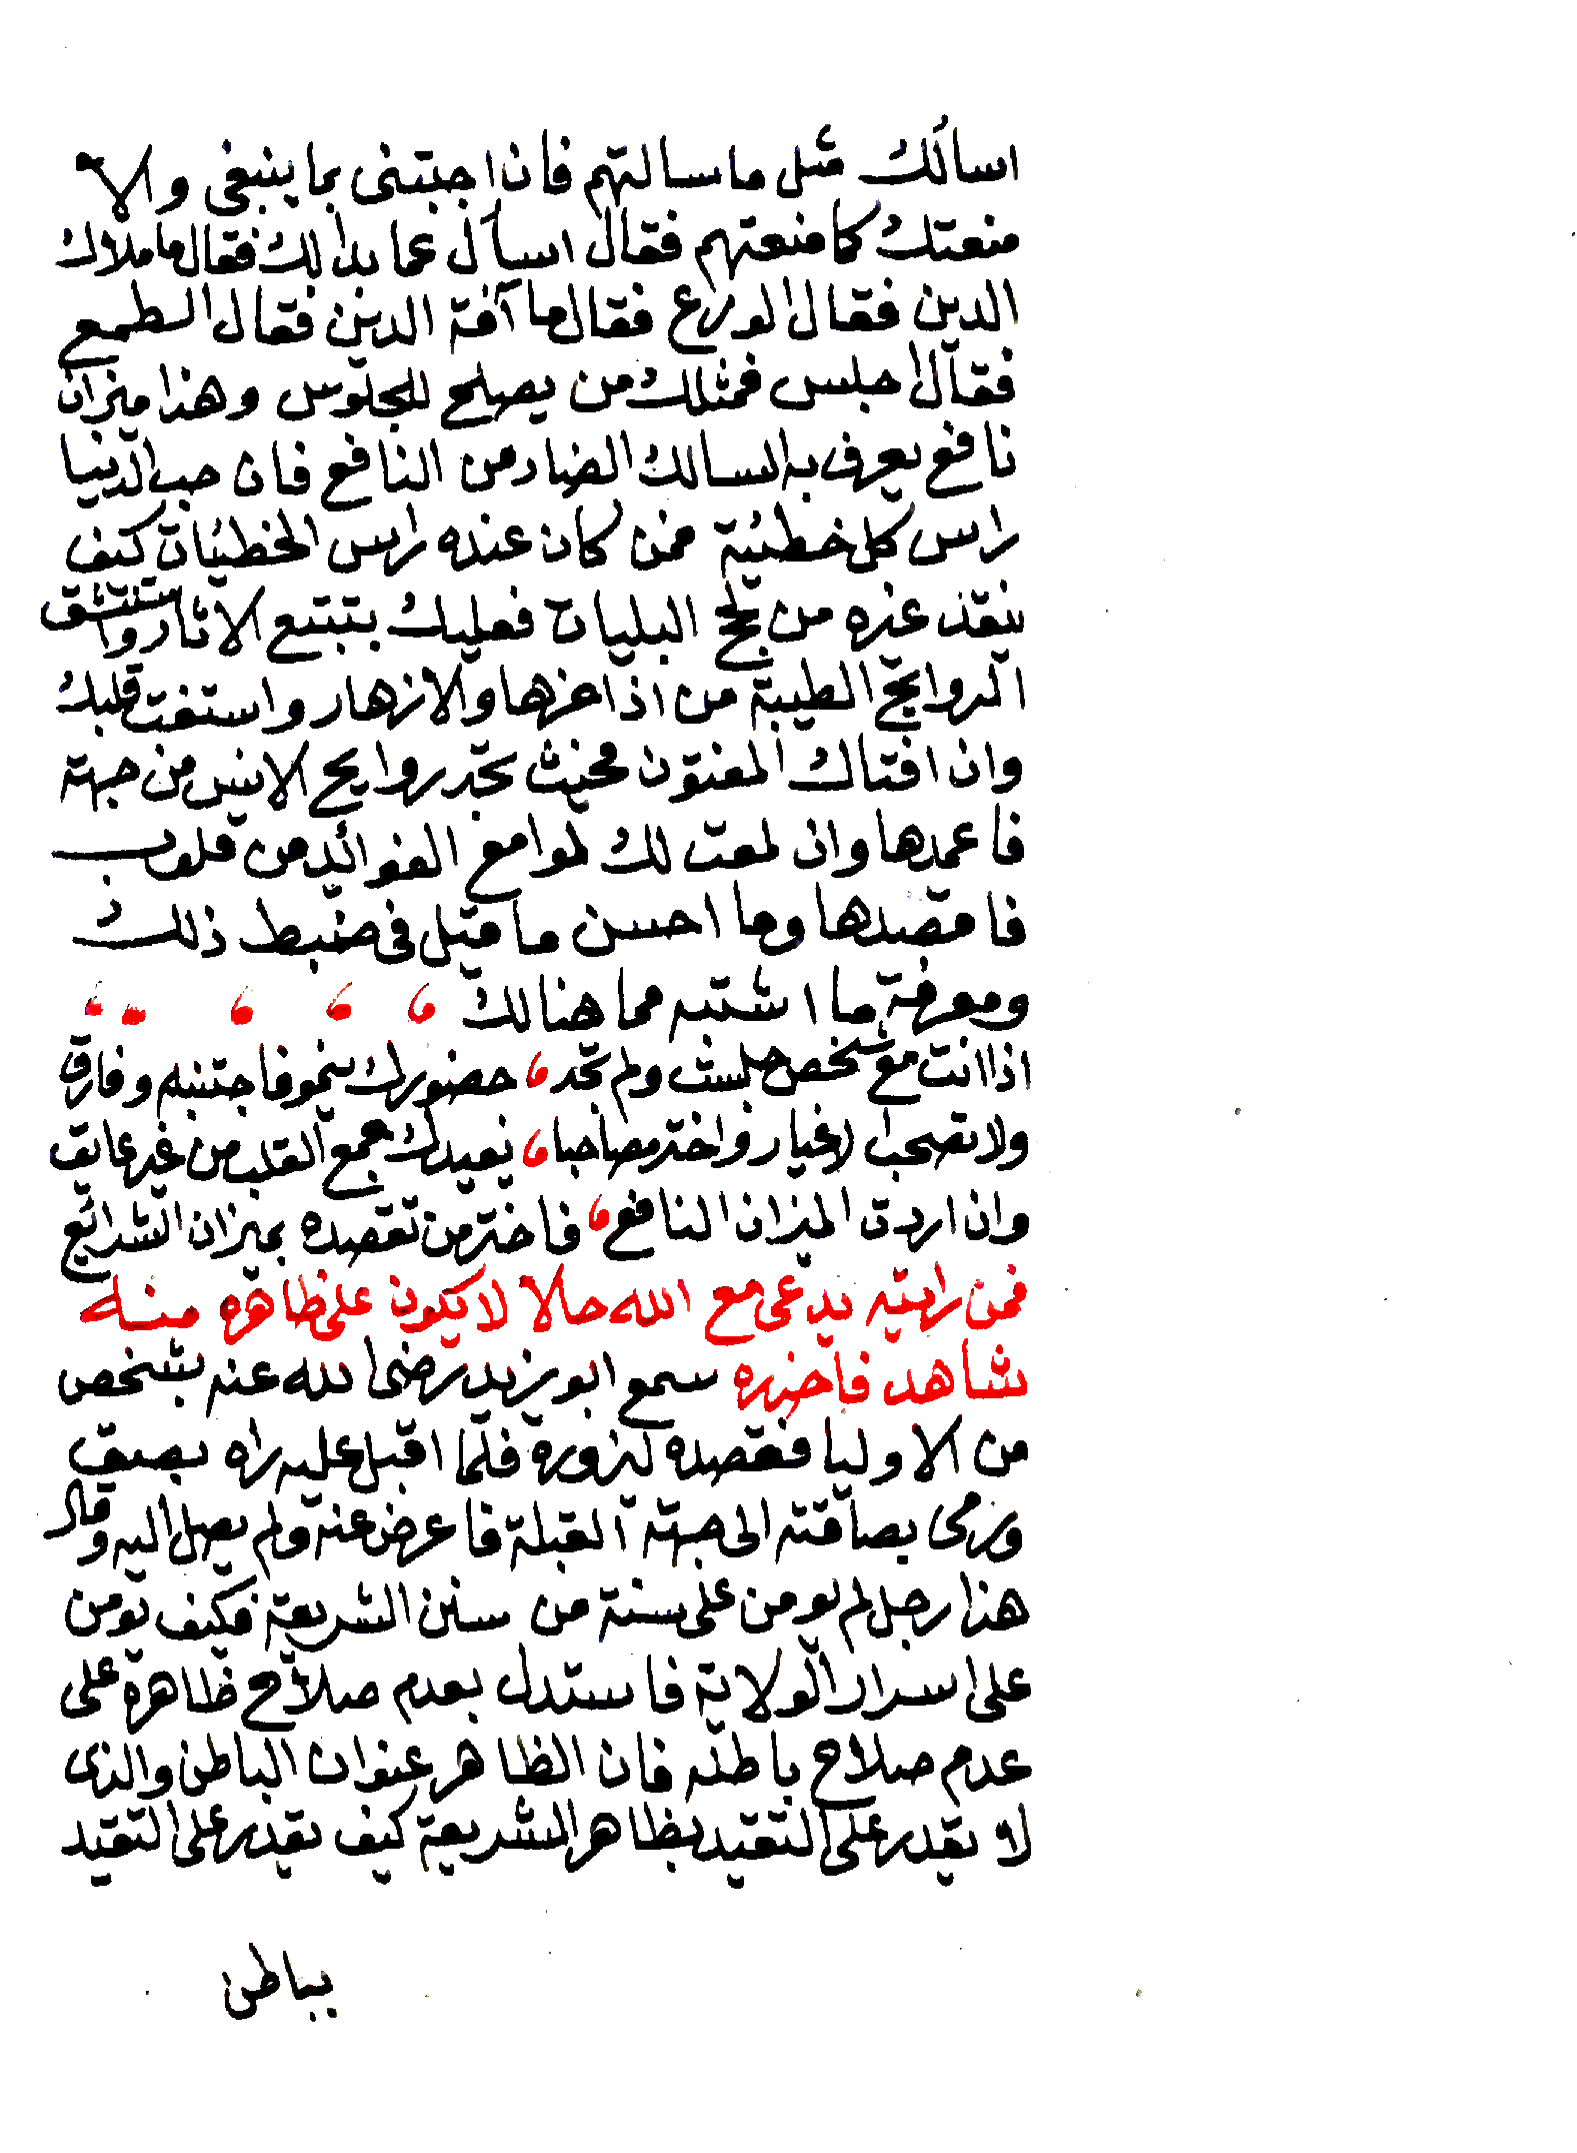 اسالك مثل ما سالتهم فان اجبتنى بما ينبغى والا
منعتك كما منعتهم فقال اسأل عما بدا لك فقال ما ملاك
الدين فقال الورع فقال ما آفة الدين فقال الطمع
فقال اجلس فمثلك من يصلح للجلوس وهذا ميزان
نافع يعرف به السالك الضار من النافع فان حب الدنيا
راس كل خطئية فمن كان عنده راس الخطئيات كيف
ينقذ غيره من لجج البليات فعليك بتتبع الاثار واستنشق
الروايح الطيبة من اذاخرها والازهار واستفت قلبك
وان افتاك المفتون فحيث تجد روايح الانس من جهة
فاعمدها وان لمعت لك لوامع الفوائد من قلوب
فاقصدها وما احسن ما قيل فى ضبط ذلك
ومعرفة ما اشتبه مما هنالك
اذا انت مع شخص جلست ولم تجد، حضورك ينمو فاجتنبه وفارق
ولا تصحب الاغيار واختر مصاحبا، يفيدك جمع القلب من غير عايق
وان اردت الميزان النافع، فاختر من تقصده بميزان الشرائع
فمن رايته يدعى مع الله حالا لا يكون على ظاهره منه
شاهد فاحذره سمع ابو يزيد رضى الله عنه بشخص
من الاوليا فقصده ليزوره فلما اقبل عليه راه بصق
ورمى بصاقته الى جهة القبلة فاعرض عنه ولم يصل اليه وقال
هذا رجل لم يومن على سنة من سنن الشريعة فكيف يومن
على اسرار الولاية فاستدل بعدم صلاح ظاهره على
عدم صلاح باطنه فان الظاهر عنوان الباطن والذى
لا يقدر على التقيد بظاهر الشريعة كيف يقدر على التقيد
بباطن